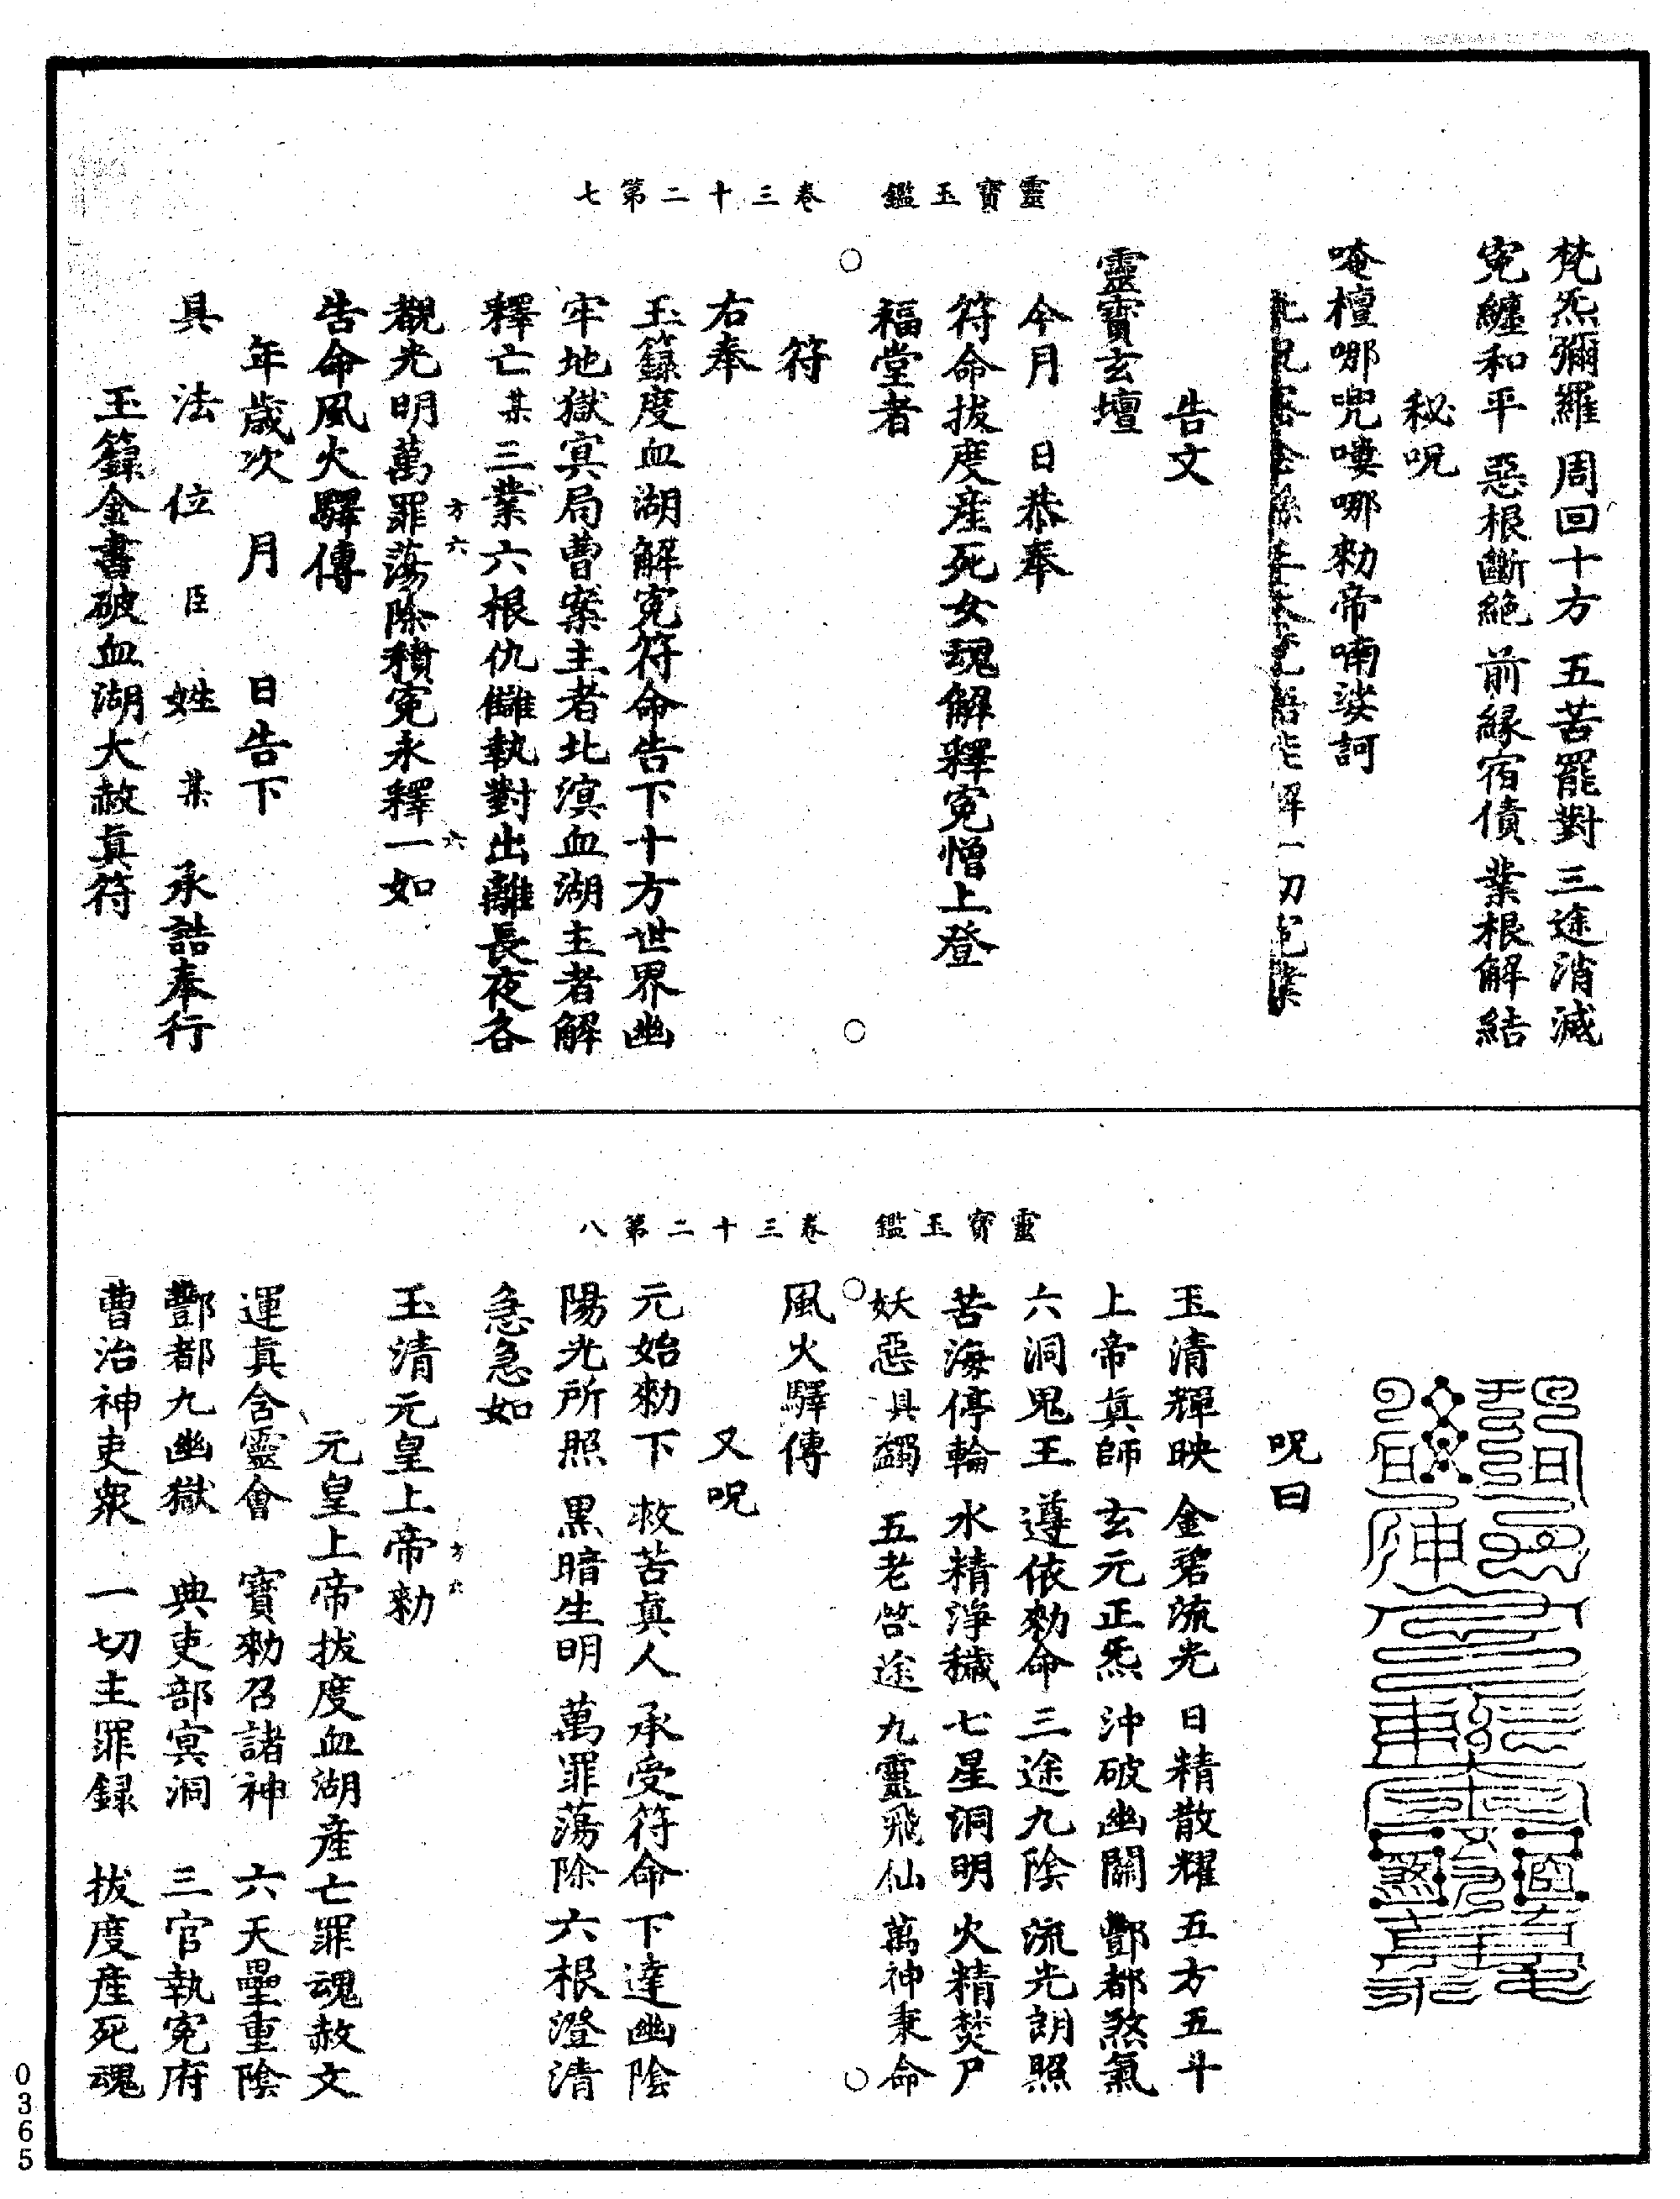 靈寶玉鑑 卷三十二第七
梵炁彌羅 周回十方 五苦罷對 三途消滅
寃纏和平 惡根斷絕 前緣宿債 業根解結
秘呪
唵檀哪兜嘍哪勑帝喃娑訶
解一切寃業
告文
靈寶玄壇
今月 日恭奉
符命拔度產死女魂解釋寃憎上登
福堂者
符
右奉
玉籙度血湖解寃符命告下十方世界幽
牢地獄寘局曹案主者北溟血湖主者解
釋亡某三業六根仇讎執對出離長夜各
覩光明萬罪蕩除積寃永釋一如
告命風火驛傳
年歲次 月 日告下
具 法 位 臣 姓 某 承誥奉行
玉籙金書破血湖大赦真符
方六
六
靈寶玉鑑 卷三十二第八
呪曰
玉清輝映 金碧流光 日精散耀 五方五斗
上帝真師 玄元正炁 沖破幽關 酆都煞氣
六洞鬼王 遵依勑命 三途九陰 流光朗照
苦海停輪 水精淨穢 七星洞明 火精焚尸
妖惡具蠲 五老啓途 九靈飛仙 萬神秉命
風火驛傳
又呪
元始勑下 救苦真人 承受符命 下達幽陰
陽光所照 黑暗生明 萬罪蕩除 六根澄清
急急如
玉清元皇上帝勑
方六
元皇上帝拔度血湖產亡罪魂赦文
運真含靈會 寶勑召諸神 六天壘重陰
酆都九幽獄 典吏部寘洞 三官執寃府
曹治神吏衆 一切主罪録 拔度產死魂
0365